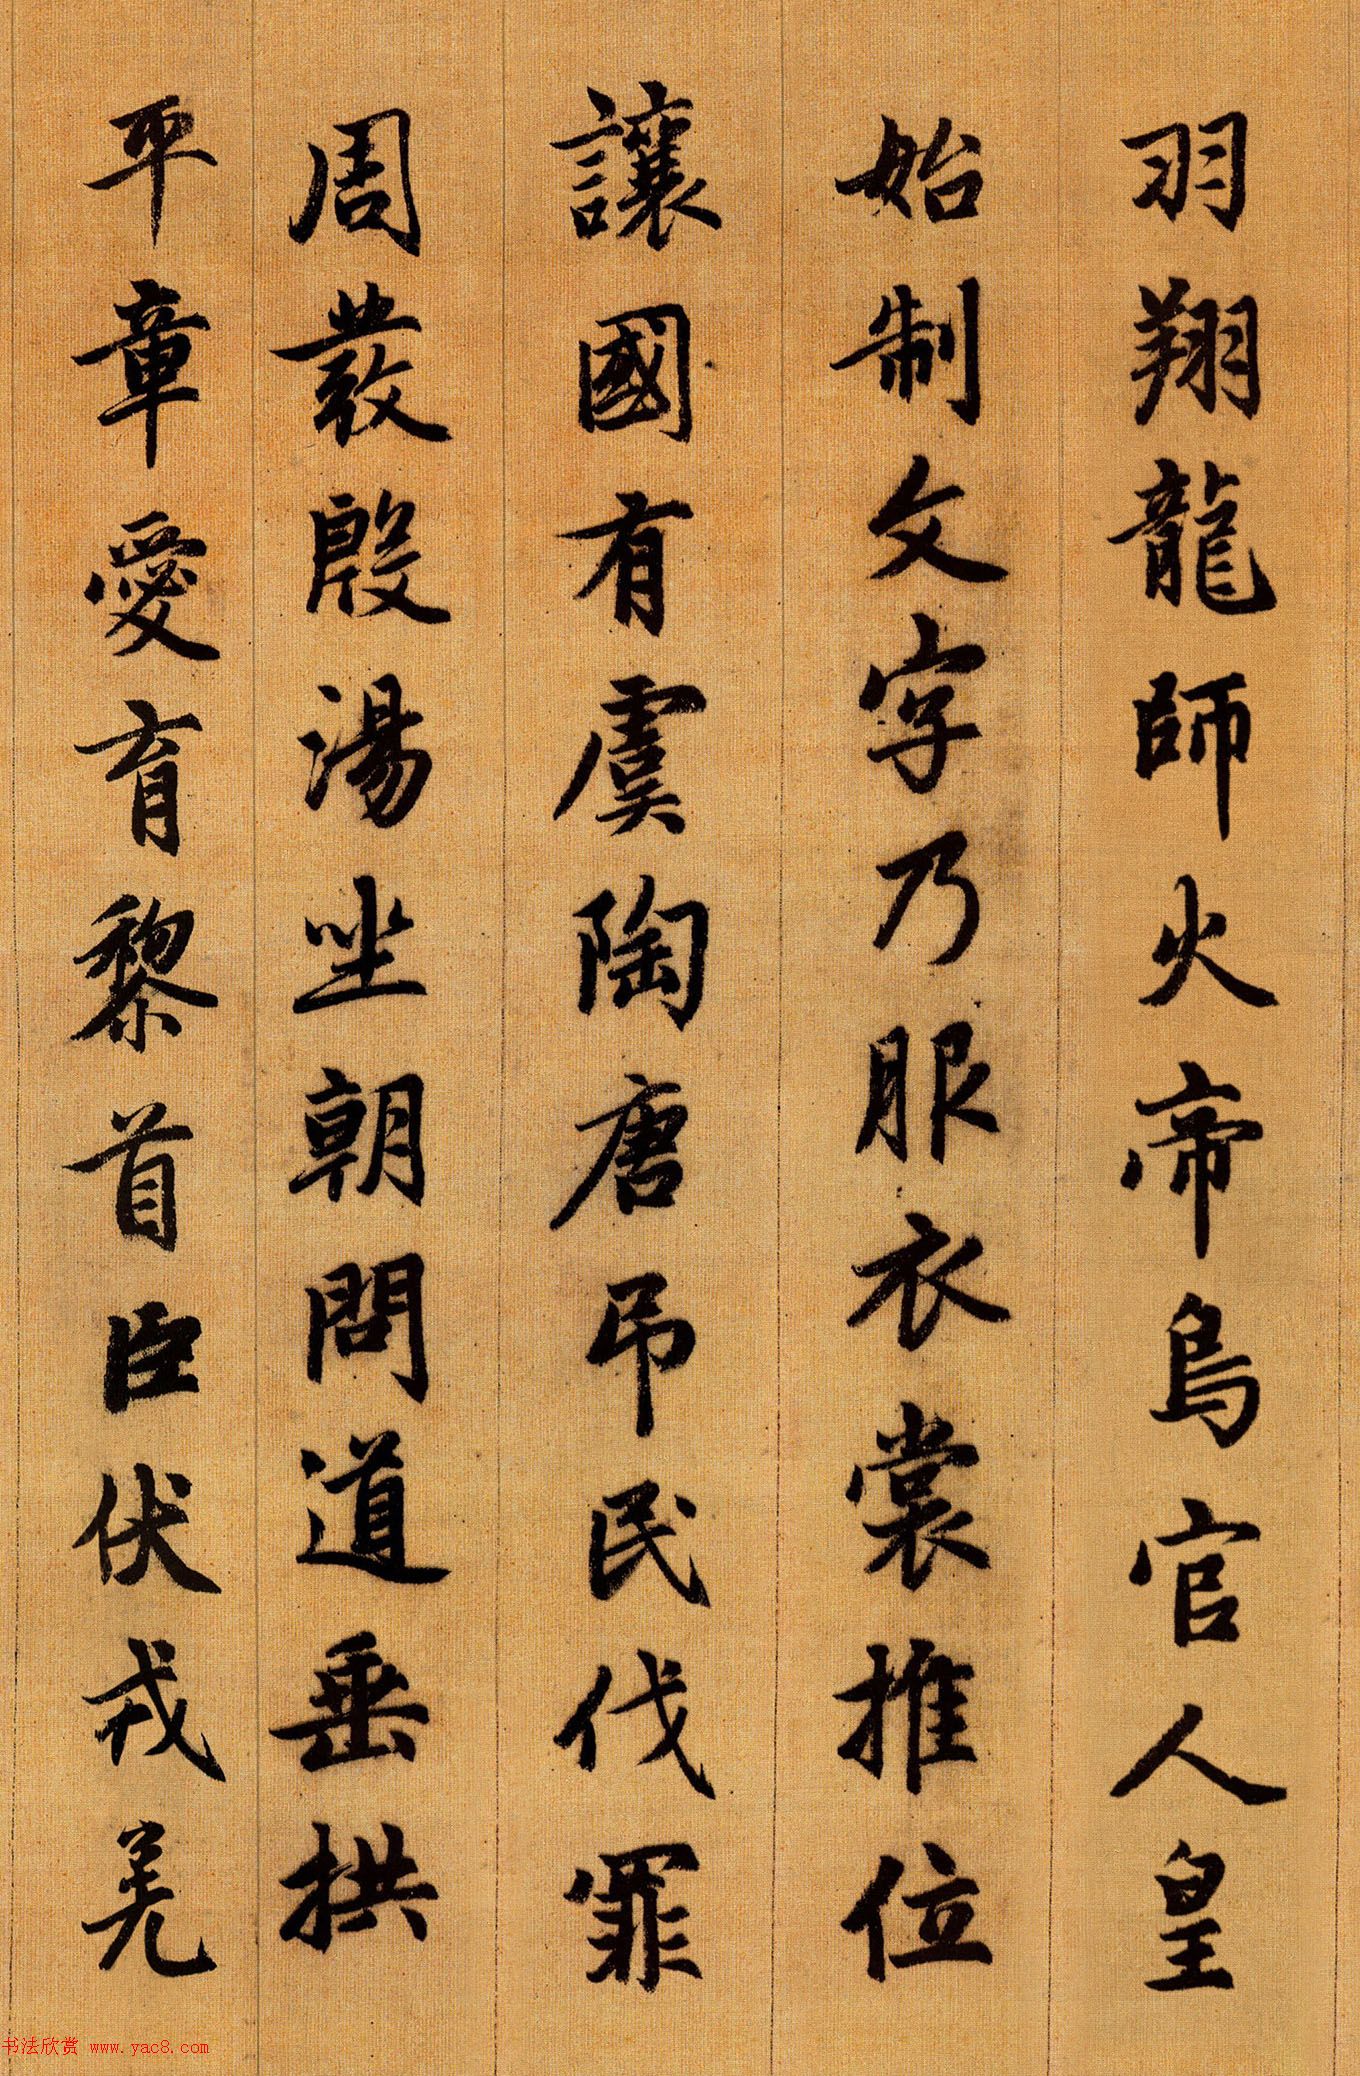 羽翔龍師火帝鳥官人皇
始制文字乃服衣裳推位
讓國有虞陶唐弔民伐罪
周發殷湯坐朝問道垂拱
平章愛育黎首臣伏戎羌
书法欣赏 www.yac8.com